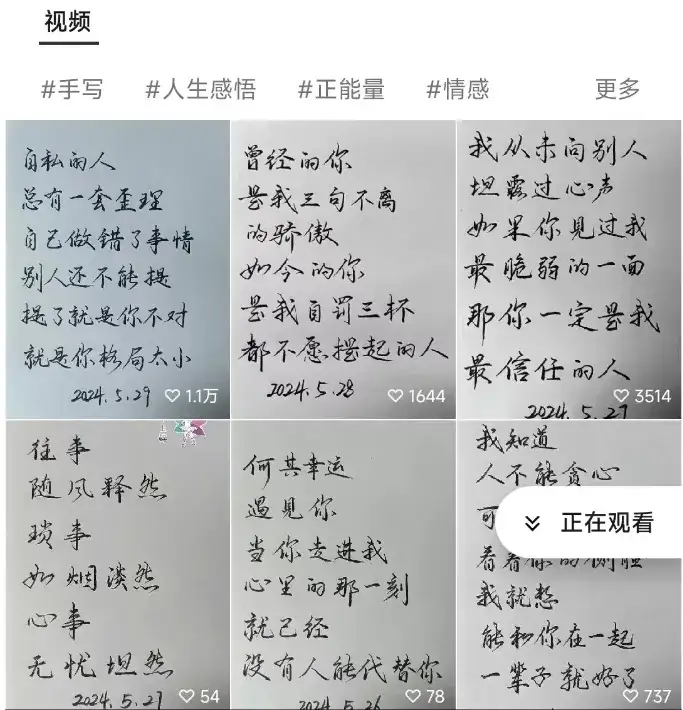 视频
#手写 #人生感悟 #正能量 #情感 更多
自私的人
总有一套歪理
自己做错了事情
别人还不能提
提了就是你不对
就是你格局太小
2024.5.29
1.1万
曾经的你
是我三句不离
的骄傲
如今的你
是我自罚三杯
都不愿提起的人
2024.5.28
1644
我从未向别人
坦露过心声
如果你见过我
最脆弱的一面
那你一定是我
最信任的人
2024.5.27
3514
往事
随风释然
琐事
如烟淡然
心事
无忧坦然
2024.5.27
54
何其幸运
遇见你
当你走进我
心里的那一刻
就已经
没有人能代替你
2024.5.26
78
我知道
人不能贪心
可
正在观看
看着你的侧脸
我就想
能和你在一起
一辈子就好了
737